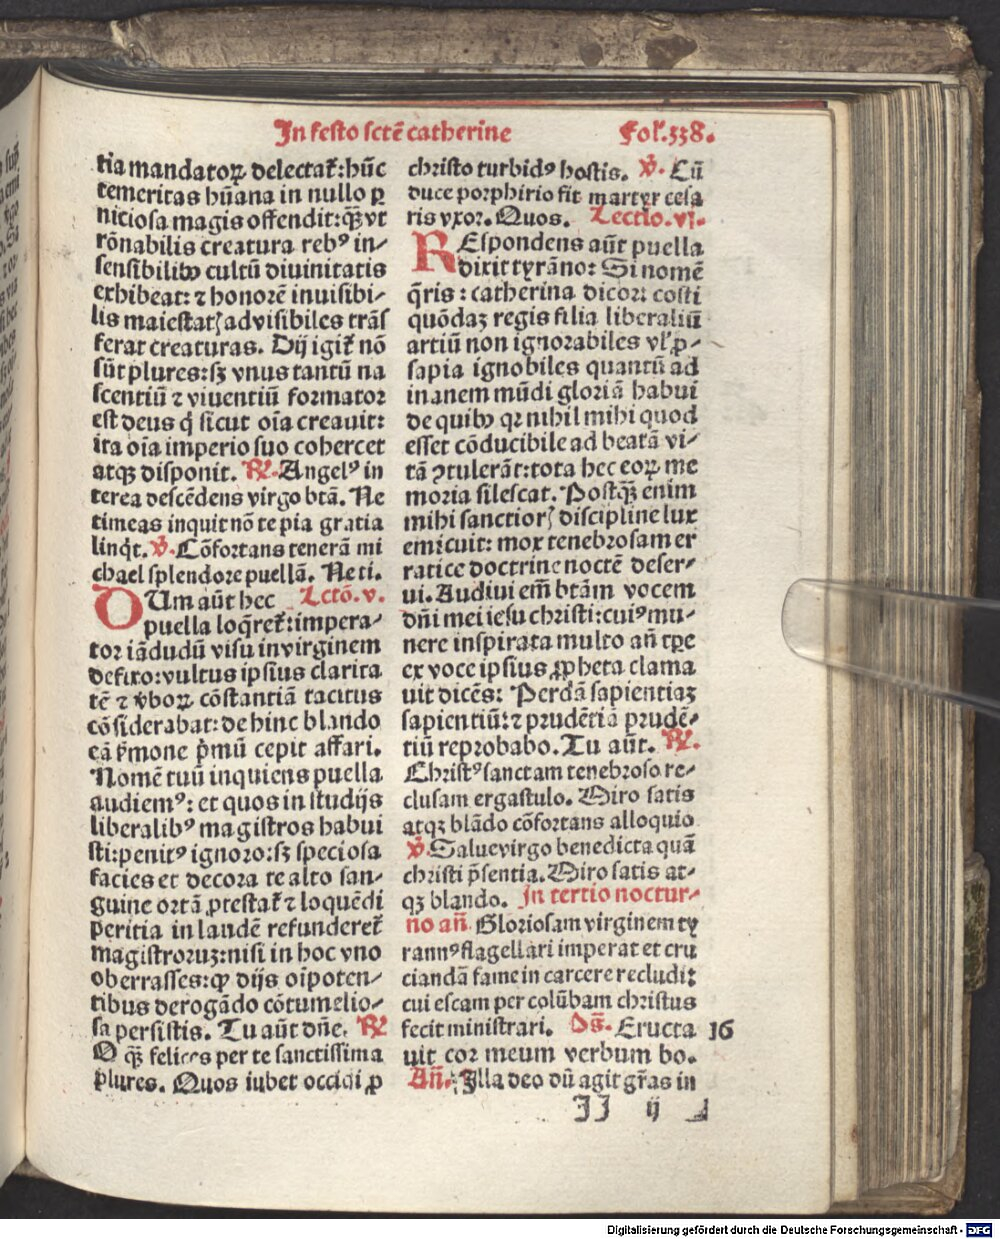 In festo sctē catherine Fol'.338.
tia mandatoꝝ delectat̄: hūc
temeritas hūana in nullo p̲
niciosa magis offendit: qꝫ vt
rōnabilis creatura rebꝰ in-
sensibilibꝰ cultū diuinitatis
exhibeat: ⁊ honorē inuisibi-
lis maiestatꝭ ad visibiles trās
ferat creaturas. Dij igit̄ nō
sūt plures: sꝫ vnus tantū na
scentiū ⁊ viuentiū formator
est deus q̇ sicut oīa creauit:
ita oīa imperio suo cohercet
atqꝫ disponit. ℟. Angelꝰ in
terea descēdens virgo btā. Ne
timeas inquit nō te pia gratia
linq̇t. ℣. Cōfortans tenerā mi
chael splendore puellā. Ne ti.
DUm aūt hec Lctō.v.
puella loq̄ret̄: impera-
tor iādudū visu in virginem
defixo: vultus ipsius clarita
tē ⁊ v̄boꝝ cōstantiā tacitus
cōsiderabat: dehinc blando
eā s̄mone p̄mū cepit affari.
Nomē tuū inquiens puella
audiemꝰ: et quos in studijs
liberalibꝰ magistros habui
sti: penitꝰ ignoro: sꝫ speciosa
facies et decora te alto san-
guine ortā ꝓtestat̄ ⁊ loquēdi
peritia in laudē refunderet̄
magistroruꝫ: nisi in hoc vno
oberrasses: ꝙ dijs oīpoten-
tibus derogādo cōtumelio-
sa persistis. Tu aūt dn̄e. ℟
O qꝫ felices per te sanctissima
plures. Quos iubet occidi ꝓ
christo turbidꝰ hostis. ℣. Cū
duce porphirio fit martyr cesa
ris vxor. Quos. Lectio.vj.
REspondens aūt puella
dixit tyrāno: Si nomē
q̄ris: catherina dicor: costi
quōdaꝫ regis filia liberaliū
artiū non ignorabiles vl' ꝓ-
sapia ignobiles quantū ad
inanem mūdi gloriā habui
de quibꝰ qꝛ nihil mihi quod
esset cōducibile ad beatā vi-
tā ꝯtulerāt: tota hec eoꝝ me
moria silescat. Postqꝫ enim
mihi sanctiorꝭ discipline lux
emicuit: mox tenebrosam er
ratice doctrine noctē deser-
ui. Audiui em̄ btām vocem
dn̄i mei iesu christi: cuiꝰ mu-
nere inspirata multo an̄ tp̲e
ex voce ipsius ꝓpheta clama
uit dicēs: Perdā sapientiaꝫ
sapientiū: ⁊ prudētiā prudē-
tiū reprobabo. Tu aūt. ℟.
Christꝰ sanctam tenebroso re-
clusam ergastulo. Miro satis
atqꝫ blādo cōfortans alloquio
℣. Salue virgo benedicta quā
christi p̄sentia. Miro satis at-
qꝫ blando. In tertio noctur-
no an̄ Gloriosam virginem ty
rannꝰ flagellari imperat et cru
ciandā fame in carcere recludi:
cui escam per colūbam christus
fecit ministrari. Ps̄. Eructa 16
uit cor meum verbum bo.
An̄. Illa deo dū agit gr̄as in
JJ ij